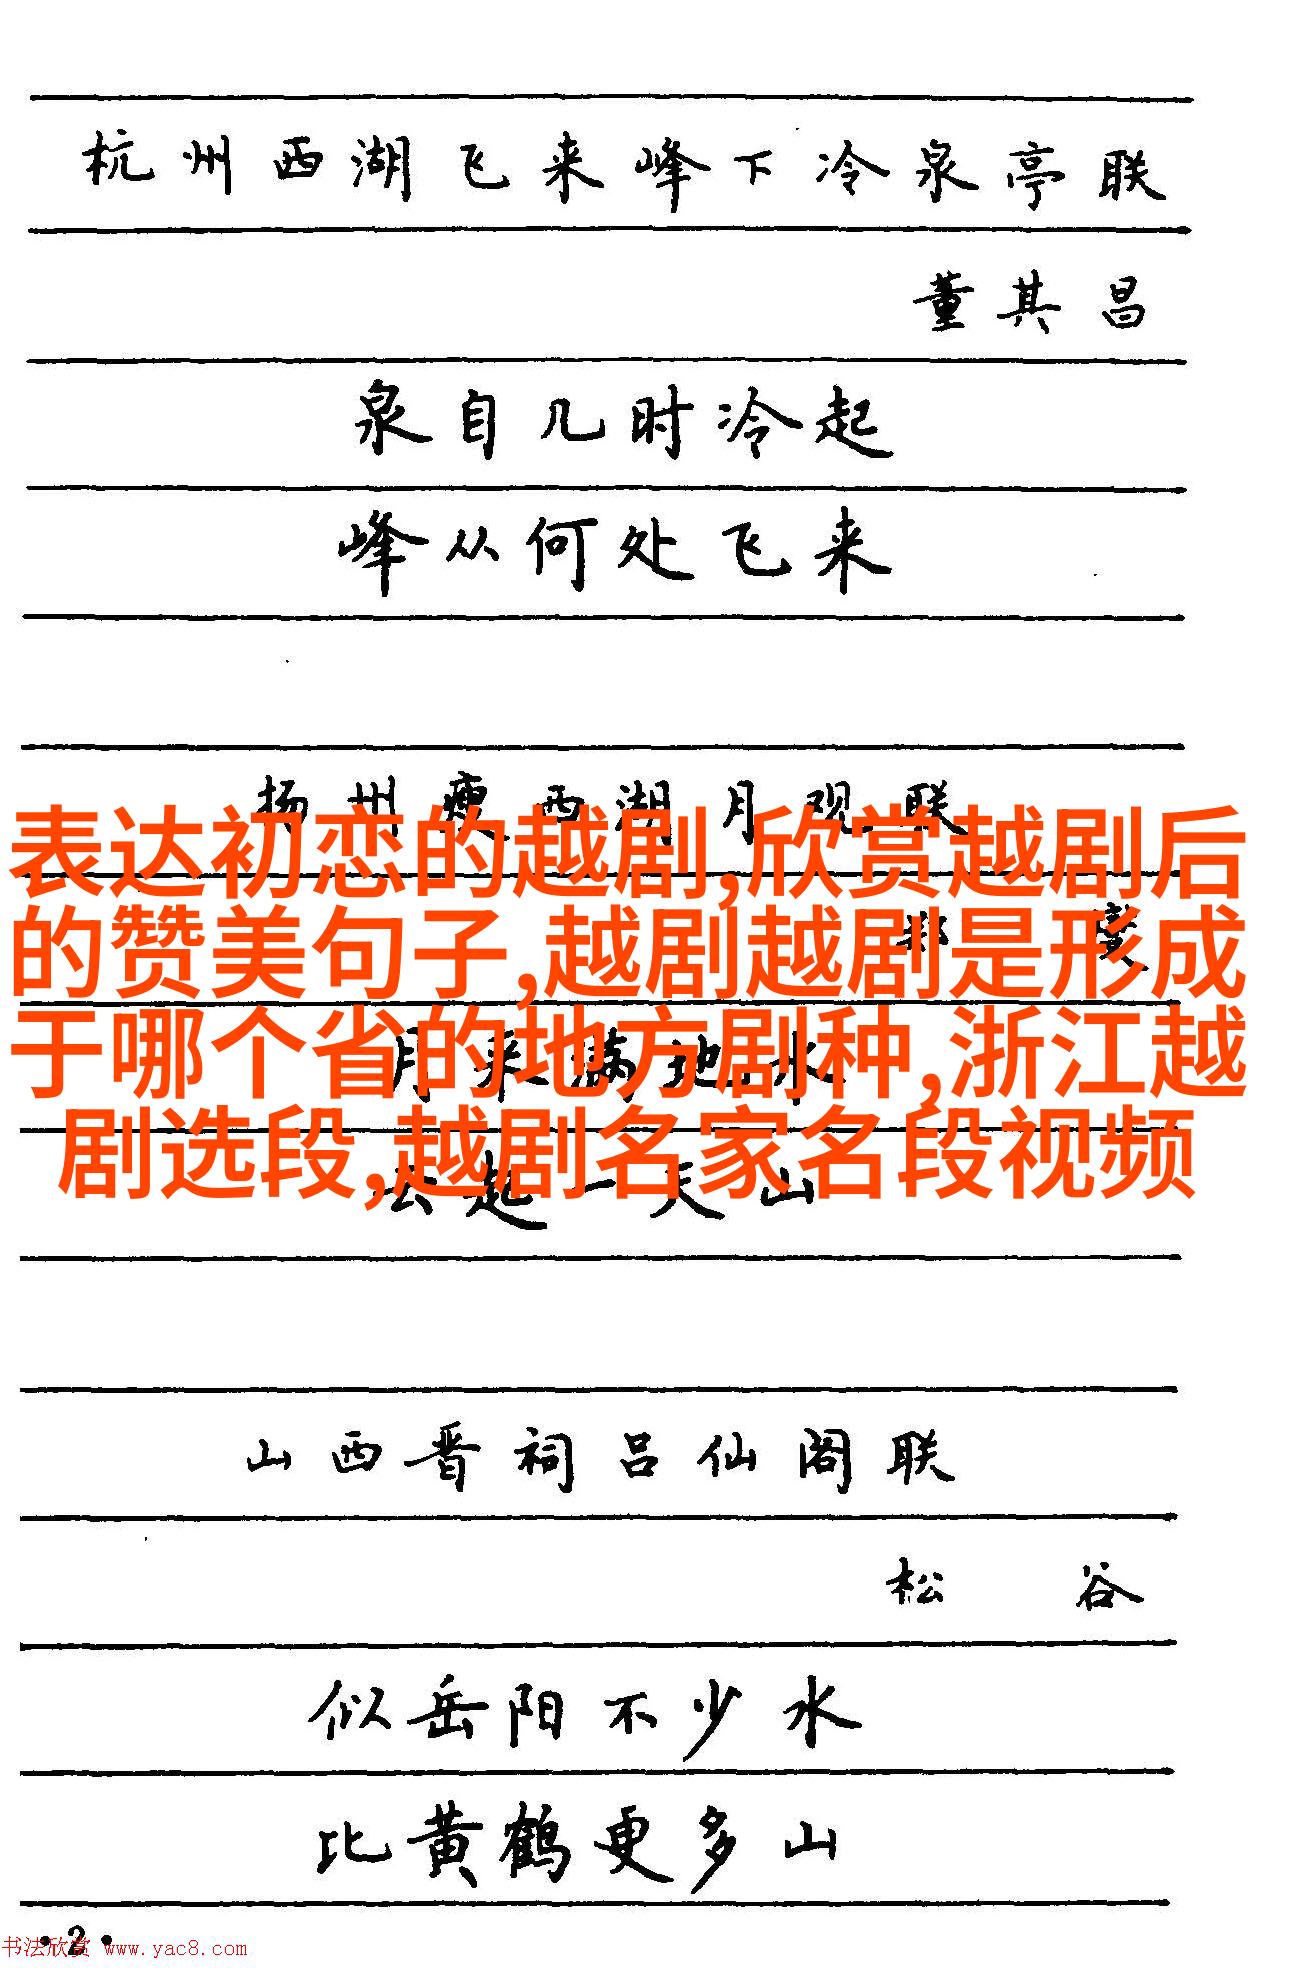 杭州西湖飞来峰下冷泉亭联
董其昌
泉自几时冷起
峰从何处飞来
扬州瘦西湖月观联
表达初恋的越剧,欣赏越剧后
郑燮
的赞美句子,越剧越剧是形成
月来满地水
于哪个省的地方剧种,浙江越
云起一天山
剧选段,越剧名家名段视频
山西晋祠吕仙阁联
松谷
似岳阳不少水
比黄鹤更多山
·2·
书法欣赏 www.yac8.com